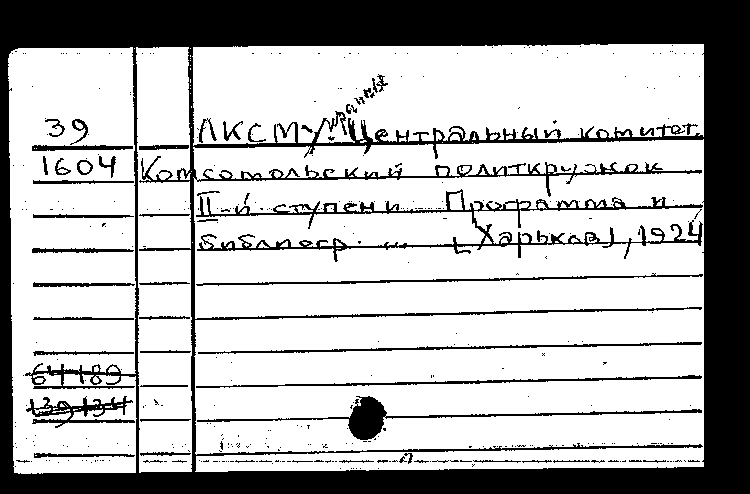 39 ЛКСМУкраины. Центральный комитет.
1604 Комсомольский политкружок
II-й ступени. Программа и
библиогр. ... [Харьков], 1924
64189
139134